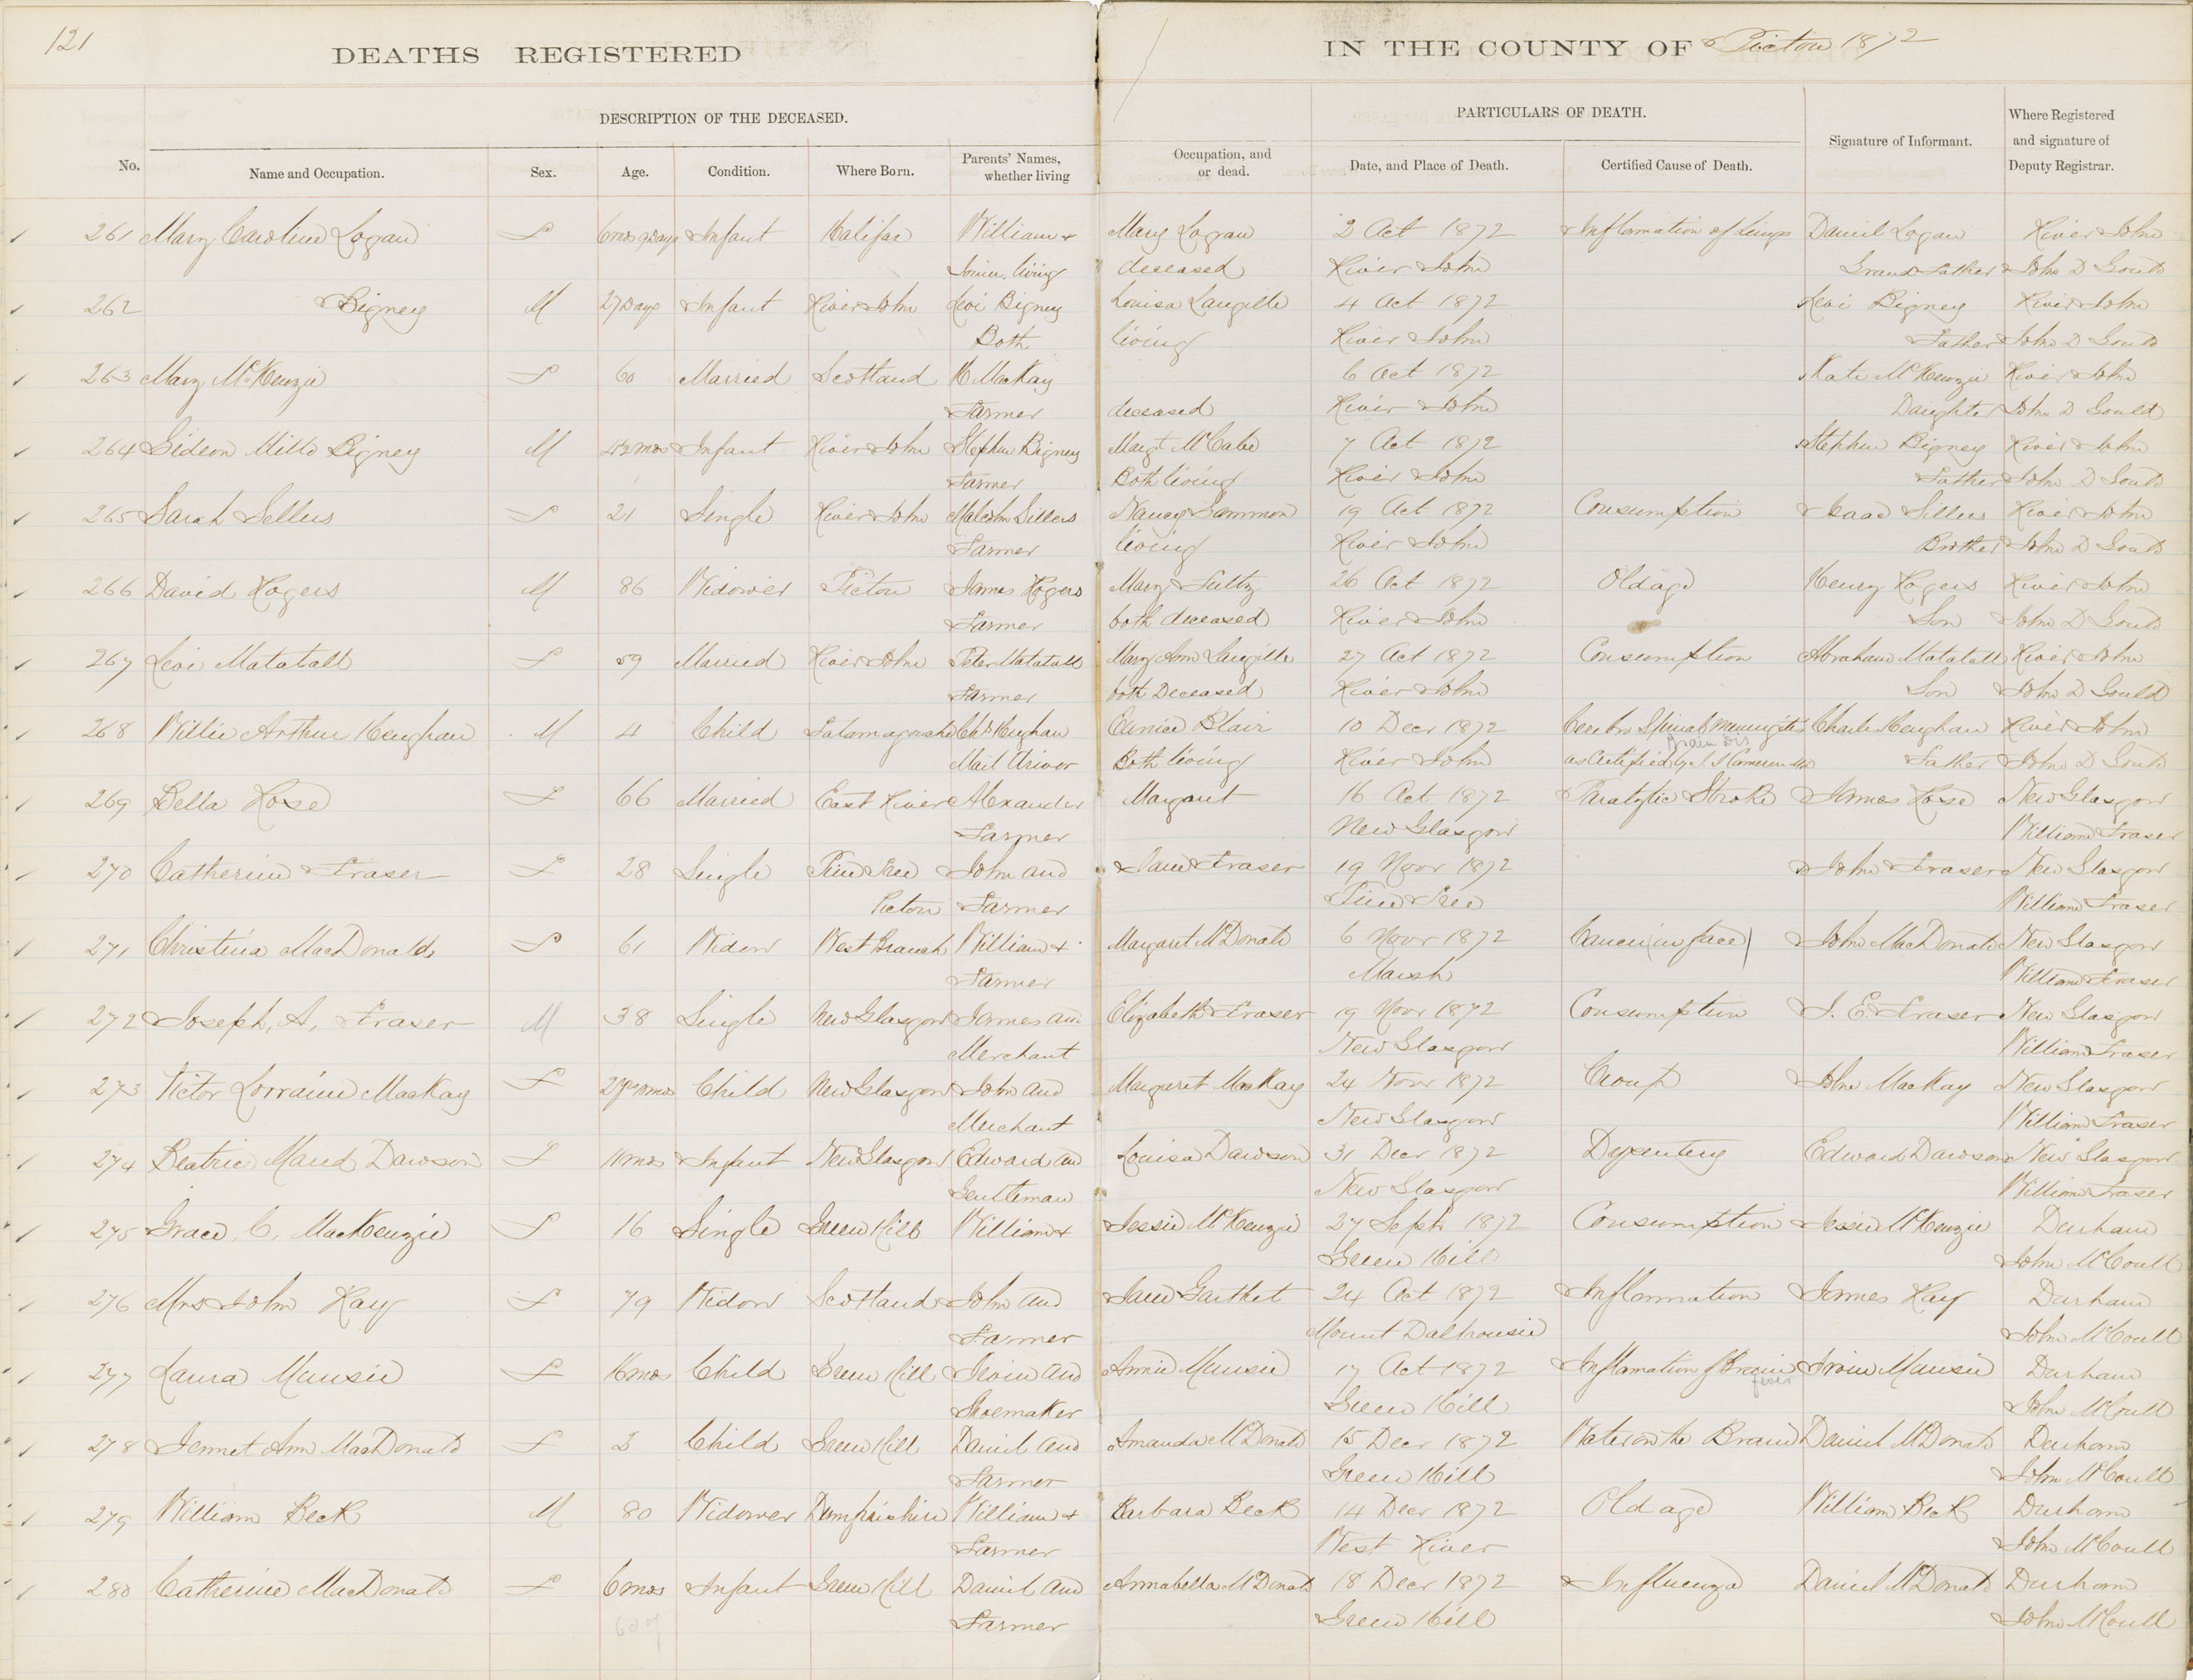 121
DEATHS REGISTERED IN THE COUNTY OF Pictou 1872
DESCRIPTION OF THE DECEASED. PARTICULARS OF DEATH.
No. Name and Occupation. Sex. Age. Condition. Where Born. Parents' Names, whether living Occupation, and or dead. Date, and Place of Death. Certified Cause of Death. Signature of Informant. Where Registered and signature of Deputy Registrar.
261 Mary Caroline Logan F 6 mos 9 Days Infant Halifax William + Mary Logan 2 Oct 1872 Inflamation of Lungs Daniel Logan River John
living deceased River John Grand Father John D Gould
262 Bigney M 27 Days Infant River John Levi Bigney Louisa Langille 4 Oct 1872 Levi Bigney River John
Both living River John Father John D Gould
263 Mary McKenzie F 60 Married Scotland MacKay 6 Oct 1872 Kate McKenzie River John
Farmer deceased River John Daughter John D Gould
264 Gideon Mills Bigney M mos Infant River John Stephen Bigney Margt McCabe 7 Oct 1872 Stephen Bigney River John
Farmer Both living River John Father John D Gould
265 Sarah Sellers F 21 Single River John Malcolm Sillers Nancy Gammon 19 Oct 1872 Consumption Isaac Sillers River John
Farmer living River John Brother John D Gould
266 David Rogers M 86 Widower Pictou James Rogers Mary 26 Oct 1872 Old age Henry Rogers River John
Farmer both deceased River John Son John D Gould
267 Levi Matatall F 59 Married River John Peter Matatall Mary Ann Langille 27 Oct 1872 Consumption Abraham Matatall River John
Farmer both Deceased River John Son John D Gould
268 Willie Arthur Henghan M 4 Child Chs Heughan Eunice Blair 10 Decr 1872 Cerebro Spinal Meningitis Charles Henghan River John
Mail driver Both living River John as Certified by Cameron Father John D Gould
269 Bella Rose F 66 Married East River Alexander Margaret 16 Oct 1872 Paralytic Stroke James Rose New Glasgow
Farmer New Glasgow William Fraser
270 Catherine Fraser F 28 Single Pine Tree John and Jane Fraser 19 Novr 1872 John Fraser New Glasgow
Pictou Farmer Pine Tree William Fraser
271 Christina MacDonald F 61 Widow West Branch William + Margaret McDonald 6 Novr 1872 Cancer (in face) John MacDonald New Glasgow
Farmer Marsh William Fraser
272 Joseph, A, Fraser M 38 Single New Glasgow James and Elizabeth Fraser 19 Novr 1872 Consumption J. E. Fraser New Glasgow
Merchant New Glasgow William Fraser
273 Victor Lorraine MacKay F 2 yrs 10 mos Child New Glasgow John and Margaret MacKay 24 Novr 1872 Croup John MacKay New Glasgow
Merchant New Glasgow William Fraser
274 Beatrice Maud Dawson F 11 mos Infant New Glasgow Edward and Louisa Dawson 31 Decr 1872 Dysentery Edward Dawson New Glasgow
Gentleman New Glasgow William Fraser
275 Grace, C, MacKenzie F 16 Single Green Hill William + Jessie McKenzie 27 Sept 1872 Consumption Jessie McKenzie Durham
Green Hill John McCoull
276 Mrs John Hay F 79 Widow Scotland John and Jane 24 Oct 1872 Inflammation James Hay Durham
Farmer Mount Dalhousie John McCoull
277 Laura Munsie F 16 mos Child Green Hill Irvin and Annie Munsie 17 Oct 1872 Inflamation of Brain Irvin Munsie Durham
fever
Shoemaker Green Hill John McCoull
278 Jennet Ann MacDonald F 3 Child Green Hill Daniel and Amanda McDonald 15 Decr 1872 Water on the Brain Daniel McDonald Durham
Farmer Green Hill John McCoull
279 William Beck M 80 Widower Dumfrishire William + Barbara Beck 14 Decr 1872 Old age William Beck Durham
Farmer West River John McCoull
280 Catherine MacDonald F 6 mos Infant Green Hill Daniel and Annabella McDonald 18 Decr 1872 Influenza Daniel McDonald Durham
Farmer Green Hill John McCoull